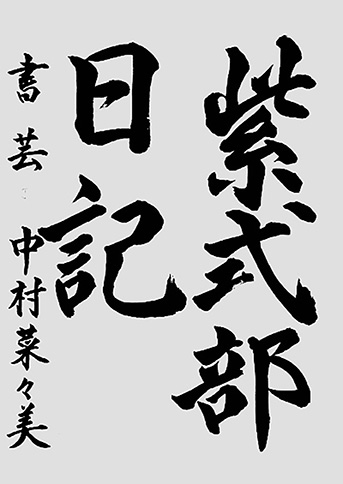 紫式部
日記
書芸 中村菜々美